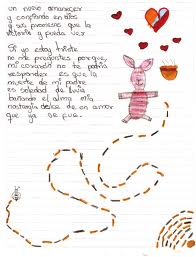 un nuevo amanecer
y confiando en Dios
y sus promesas que la
victoria y pueda ver

Si yo estoy triste
no me preguntes porque,
mi corazón no te podría
responder es que la
muerte de mi padre
es soledad de lluvia
bañando el alma mía
nostalgia dulce de un amor
que ya se fue.